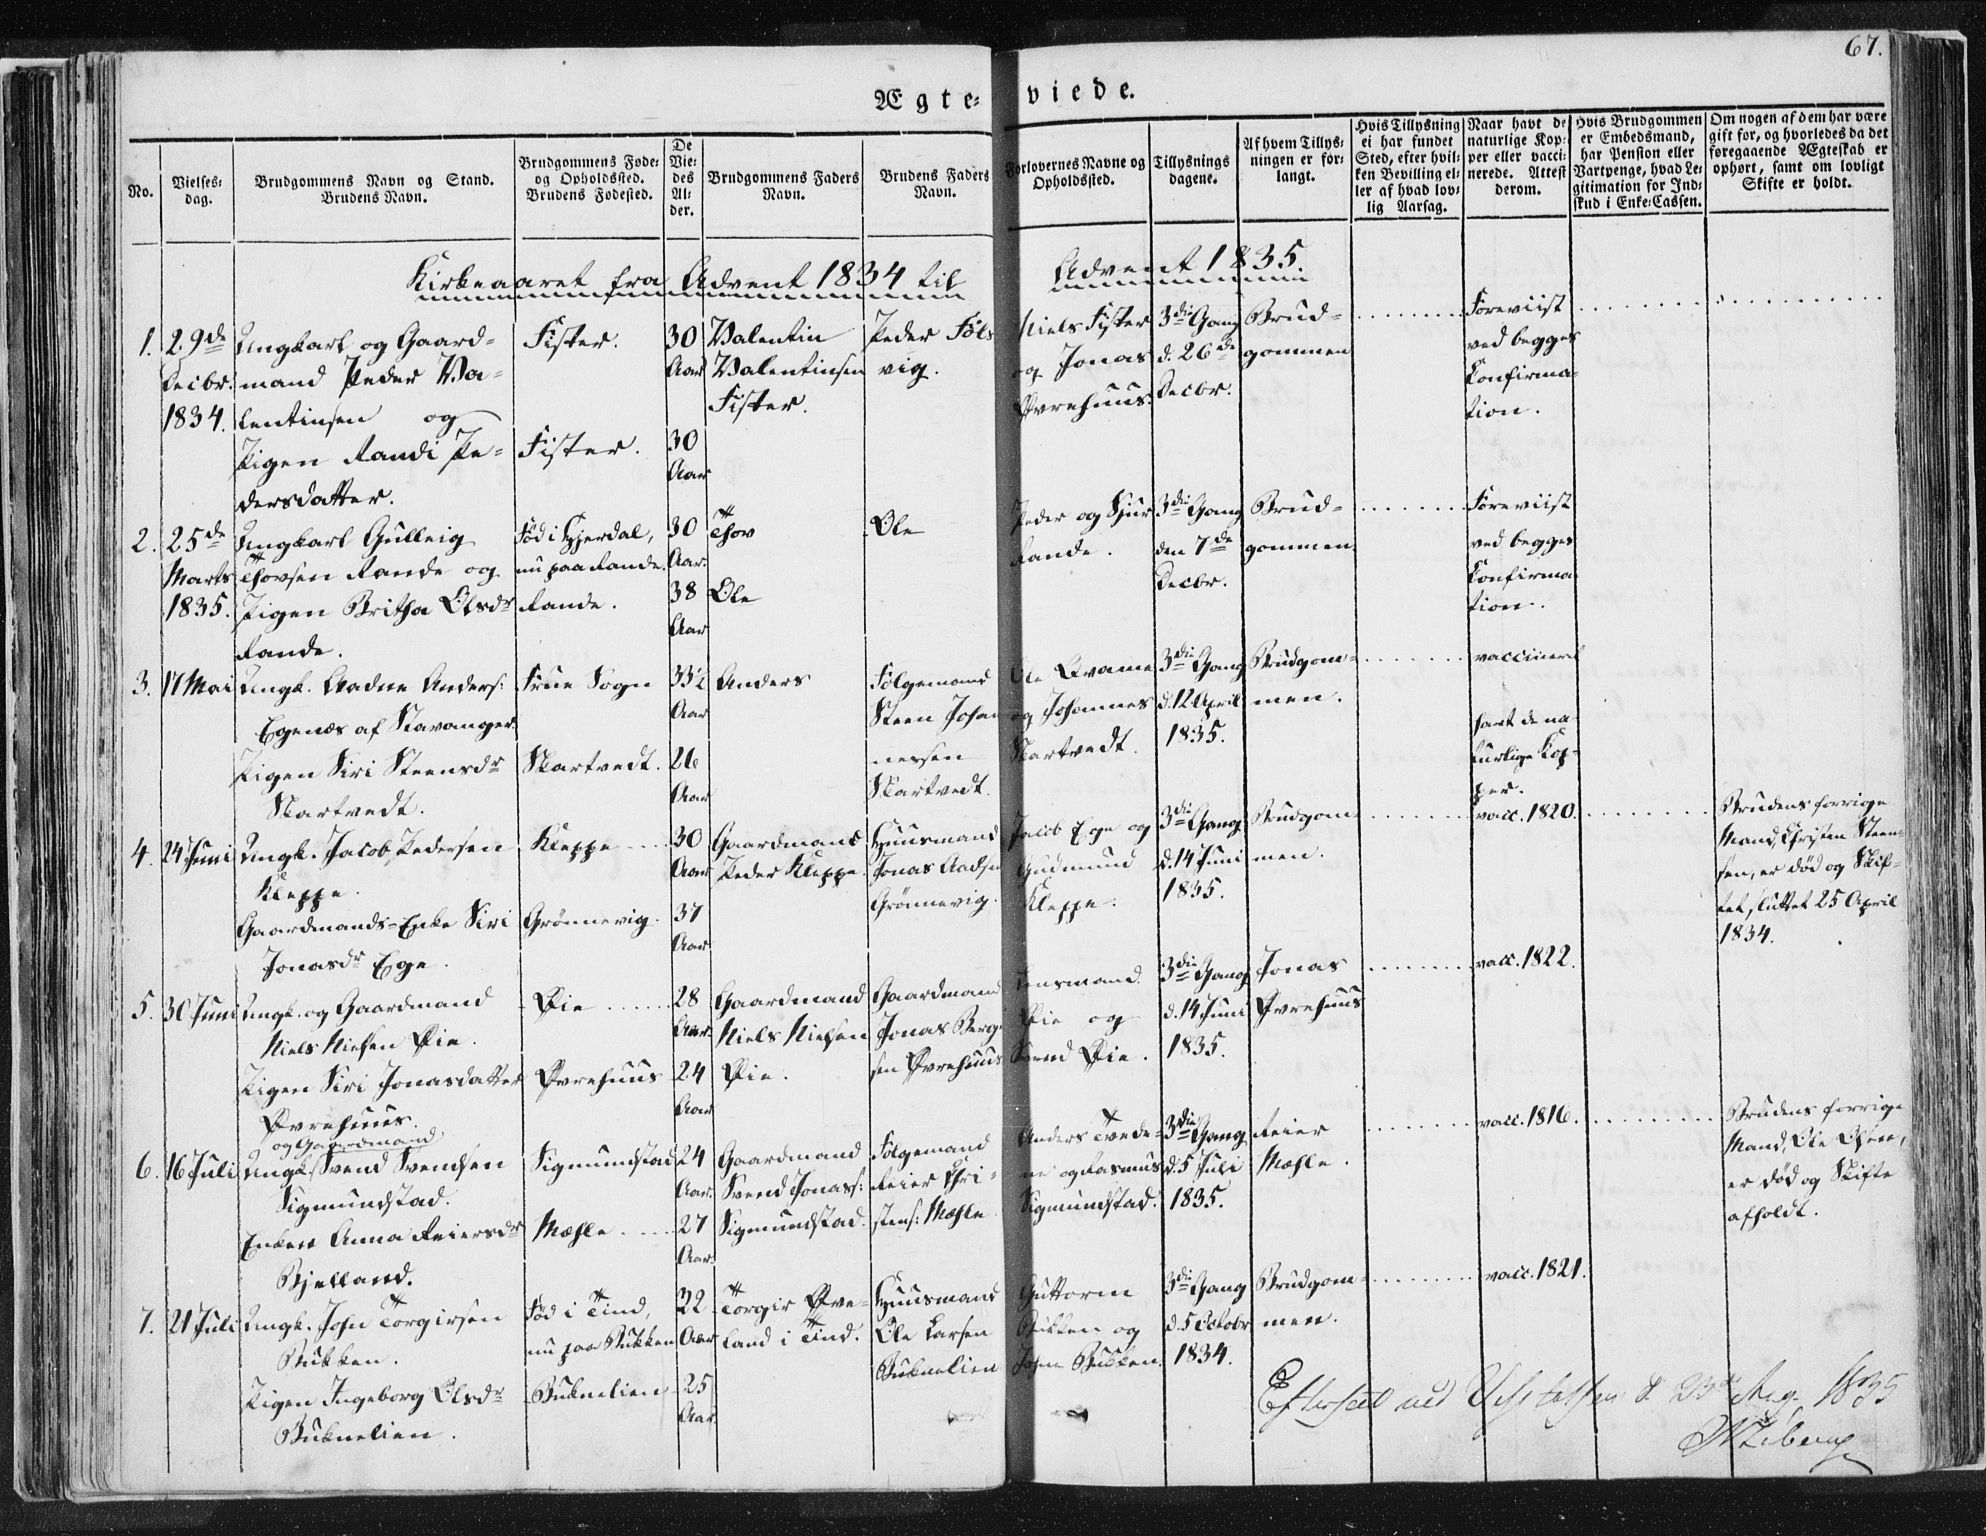 67.
Ægte-viede.
No.
Vielses-
dag.
Brudgommens Navn og Stand.
Brudens Navn.
Brudgommens Føde-
og Opholdssted.
Brudens Fødested.
De
Vie-
des
Al-
der.
Brudgommens Faders
Navn.
Brudens Faders
Navn.
Forlovernes Navne og
Opholdssted.
Tillysnings
dagene.
Af hvem Tillys-
ningen er for-
langt.
Hvis Tillysning
ei har fundet
Sted, efter hvil-
ken Bevilling el-
ler af hvad lov-
lig Aarsag.
Naar havt de
naturlige Kop-
per eller vacci-
nerede. Attest
derom.
Hvis Brudgommen
er Embedsmand,
har Pension eller
Vartpenge, hvad Le-
gitimation for Ind-
skud i Enke-Cassen.
Om nogen af dem har være
gift før, og hvorledes da det
foregaaende Ægteskab er
ophørt, samt om lovligt
Skifte er holdt.
Kirkeaaret fra Advent 1834 til Advent 1835.
1.
29de
Decbr.
1834.
Ungkarl og Gaard-
mand Peder Va-
lentinsen og
Pigen Randi Pe-
dersdatter.
Fister.
Fister.
30
Aar
30
Aar
Valentin
Valentinsen
Fister.
Peder Føls
vig.
Niels Fister
og Jonas
Øvrehuus.
3die Gang
d. 26de
Decbr.
Brud-
gommen
Foreviist
ved begges
Confirma-
tion.
2.
25de
Marts
1835.
Ungkarl Gulleig
Thovsen Rande og
Pigen Britha Olsdr
Rande.
Fød i Hjerdal,
nu paa Rande.
Rande.
30
Aar.
38
Aar
Thov
Ole
Ole
Peder og Sjur
Rande.
3die Gang
den 7de
Decbr.
Brud-
gommen.
Foreviist
ved begges
Confirma-
tion.
3.
17 Mai
Ungk. Aadne Anders:
Egenæs af Stavanger
Pigen Siri Steensdr
Nartvedt.
Frue Sogn
Nartvedt.
33½
Aar
26
Aar
Anders
Følgemand
Steen Johan
nessen
Nartvedt.
Ole Qvame
og Johannes
Nartvedt.
3die Gang
d. 12 April
1835.
Brudgom-
men.
vaccineret
havt de na-
turlige Kop-
per.
4.
24 Juni
Ungk. Jacob Pedersen
Kleppe.
Gaardmands-Enke Siri
Jonasdr Ege.
Kleppe
Grønnevig.
30
Aar
37
Aar.
Gaardmand
Peder Kleppe.
Huusmand
Jonas Aadsen
Grønnevig.
Jacob Ege og
Gudmund
Kleppe.
3die Gang
d. 14 Juni
1835.
Brudgom-
men.
vacc. 1820.
Brudens forrige
Mand, Christen Steen-
sen, er død og Skif-
tet sluttet 25 April
1834.
5.
30 Juni
Ungk. og Gaardmand
Niels Nielsen Øie.
Pigen Siri Jonasdatter
Øvrehuus.
Øie
Øvrehuus
28
Aar.
24
Aar
Gaardmand
Niels Nielsen
Øie.
Gaardmand
Jonas Berge
sen Øvrehuus
Lensmand
Øie og
Svend Øie.
3die Gang
d. 14 Juni
1835.
Jonas
Øvrehuus
vacc. 1822.
6.
16 Juli
og Gaardmand
Ungk. Svend Svendsen
Sigmundstad.
Enken Anna Reiersdr
Bjelland.
Sigmundstad
Mæhle.
24
Aar.
27
Aar.
Gaardmand
Svend Jonass:
Sigmundstad.
Følgemand
Reier Chri-
stens: Mæhle
Anders Tvede-
ne og Rasmus
Sigmundstad.
3die Gang
d. 5 Juli
1835.
Reier
Mæhle.
vacc. 1816.
Brudens forrige
Mand, Ole Olsen,
er død og Skifte
afholdt.
7.
21 Juli
Ungk. John Torgirsen
Bukken.
Pigen Ingeborg Olsdr
Buknelien.
Fød i Tind,
nu paa Bukken
Buknelien
22
Aar
25
Aar.
Torgir Øve-
land i Tind.
Huusmand
Ole Larsen
Buknelien
Guttorm
Bukken og
John Bukken.
3die Gang
d. 5 October
1834.
Brudgom-
men.
vacc. 1821.
Efterseet ved d. 23de Aug. 1835